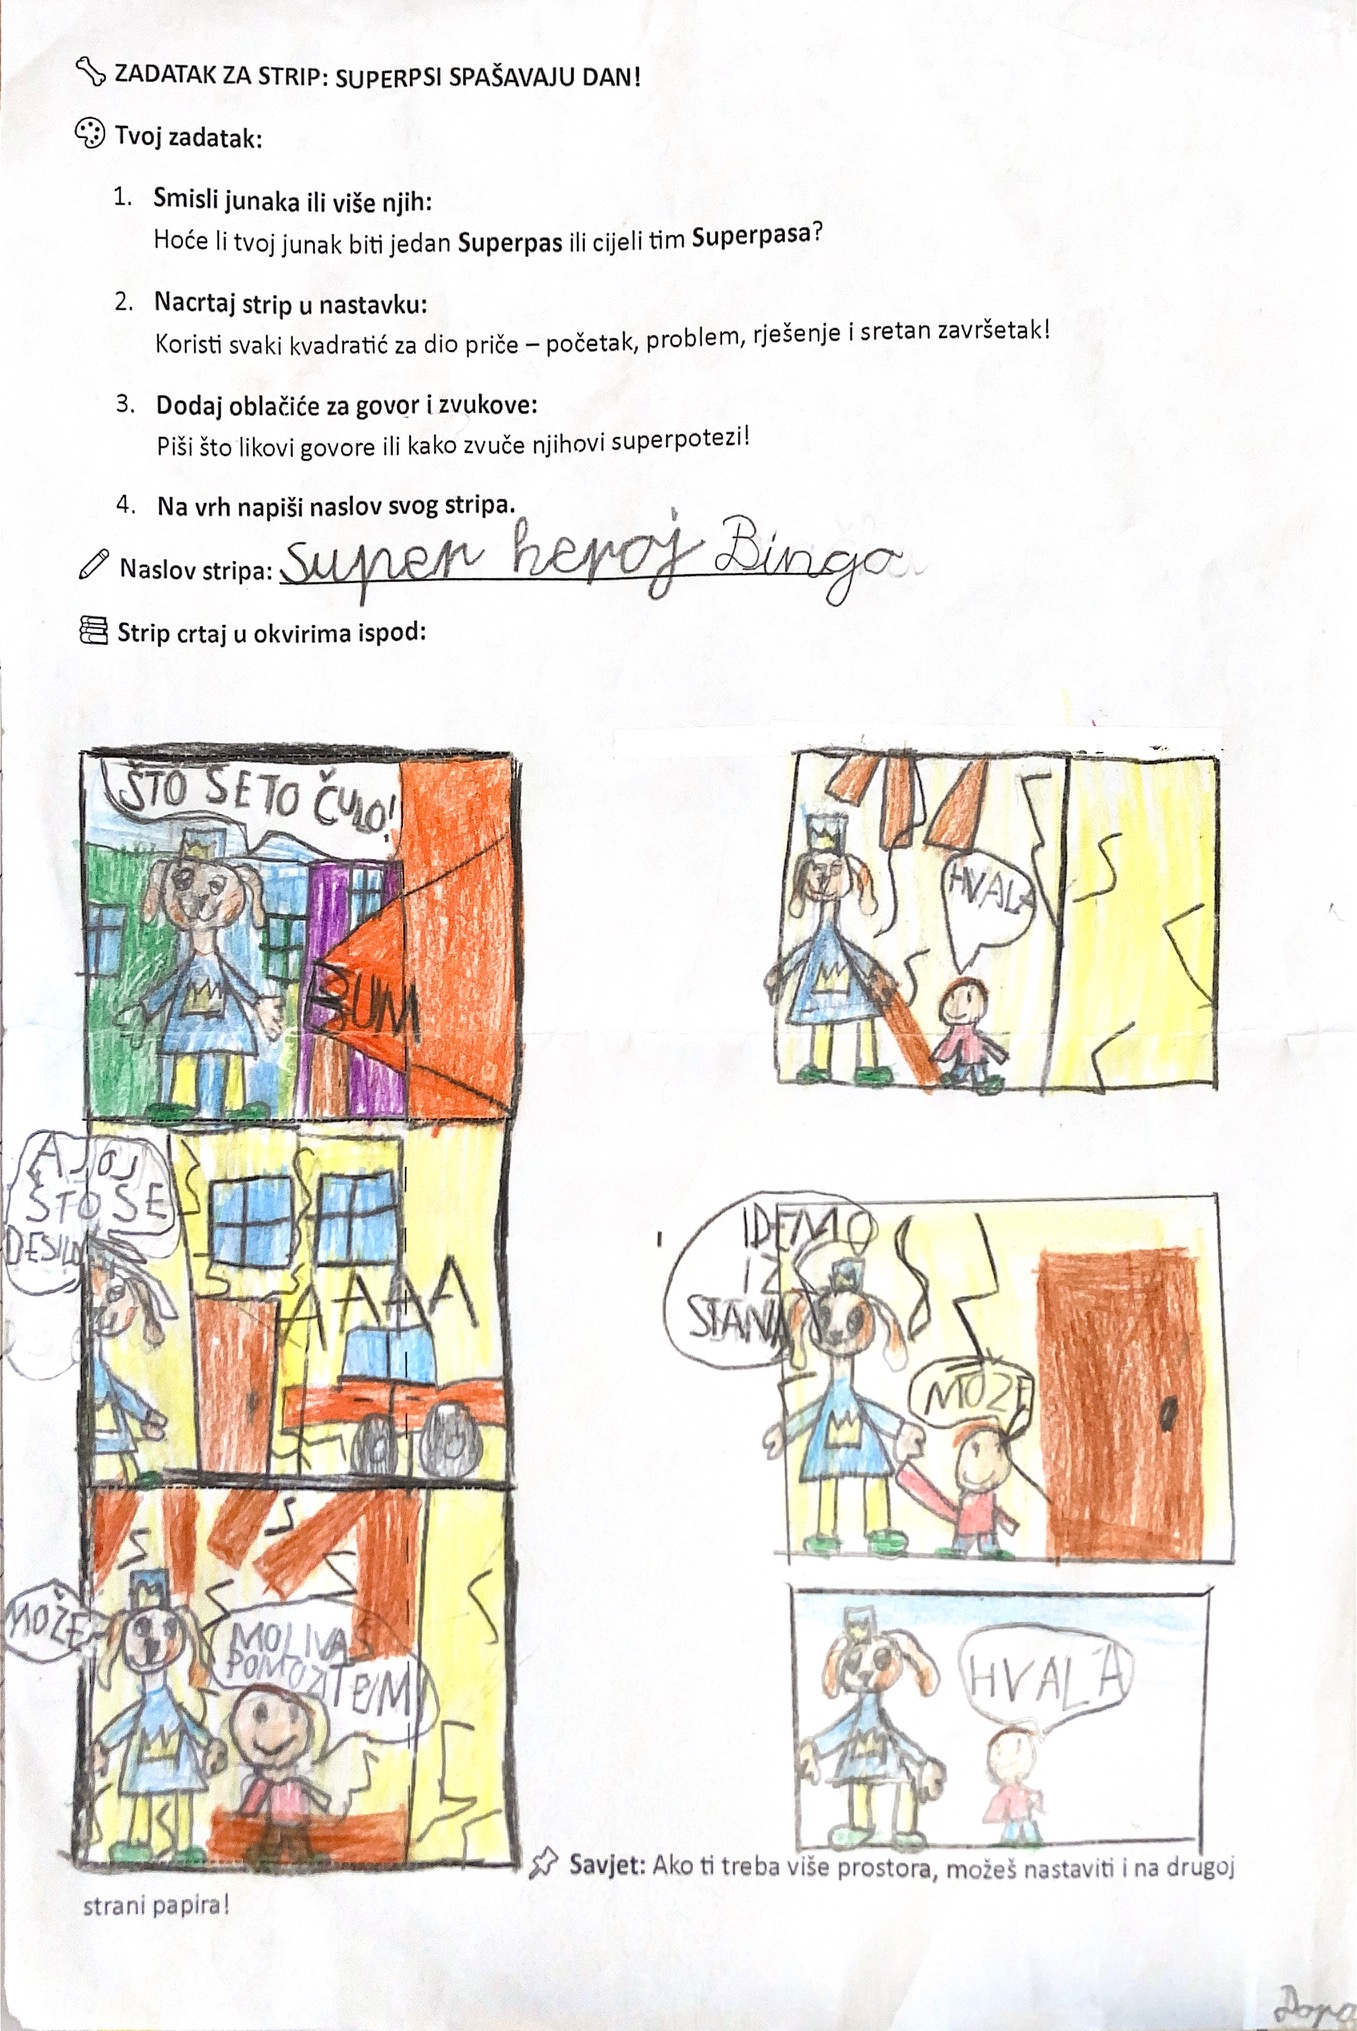 ZADATAK ZA STRIP: SUPERPSI SPAŠAVAJU DAN!
Tvoj zadatak:
1. Smisli junaka ili više njih:
Hoće li tvoj junak biti jedan Superpas ili cijeli tim Superpasa?
2. Nacrtaj strip u nastavku:
Koristi svaki kvadratić za dio priče – početak, problem, rješenje i sretan završetak!
3. Dodaj oblačiće za govor i zvukove:
Piši što likovi govore ili kako zvuče njihovi superpotezi!
4. Na vrh napiši naslov svog stripa.
Naslov stripa: Super heroj Bingo
Strip crtaj u okvirima ispod:
ŠTO SE TO ČULO!
BUM
AJOJ
ŠTO SE
DESILO
AAAAA
MOŽE
MOLIVAS
POMOZITE MI
HVALA
IDEMO
IZ
STANA
MOŽE
HVALA
Savjet: Ako ti treba više prostora, možeš nastaviti i na drugoj
strani papira!